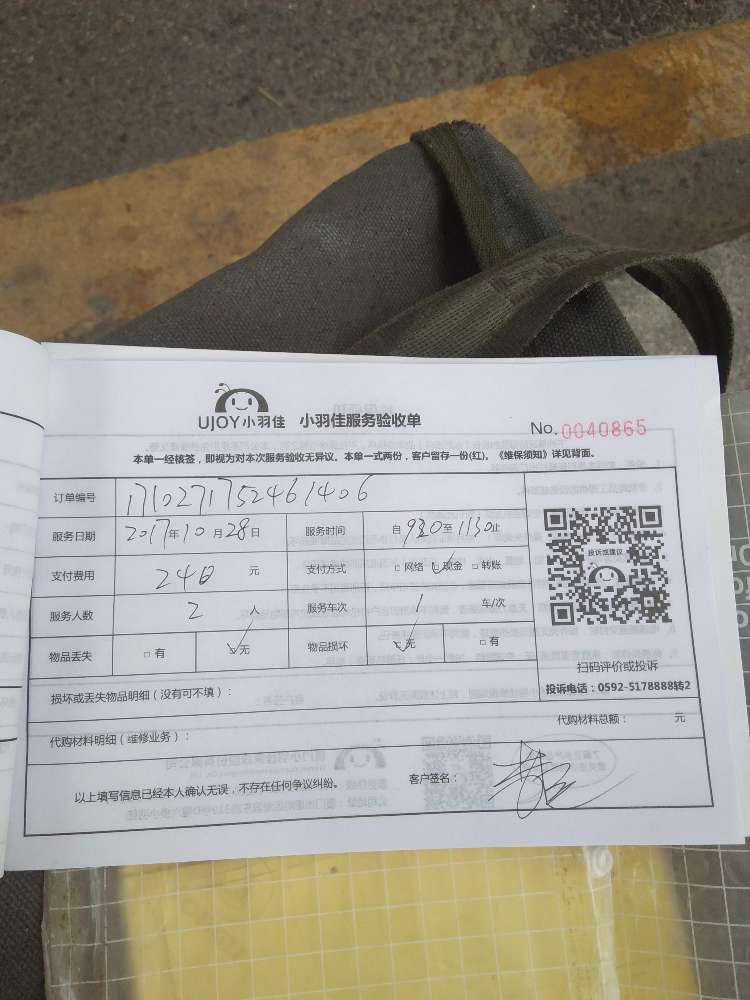 UJOY小羽佳 小羽佳服务验收单
No.0040865
本单一经核签，即视为对本次服务验收无异议。本单一式两份，客户留存一份(红)。《维保须知》详见背面。
订单编号 1710271752461406
服务日期 2017年10月28日 服务时间 自930至1130止
支付费用 240元 支付方式 □网络 ☑现金 □转账
投诉或建议
服务人数 2人 服务车次 1车/次
物品丢失 □有 ☑无 物品损坏 ☑无 □有
扫码评价或投诉
投诉电话：0592-5178888转2
损坏或丢失物品明细（没有可不填）：
代购材料明细（维修业务）： 代购材料总额： 元
以上填写信息已经本人确认无误，不存在任何争议纠纷。 客户签名：